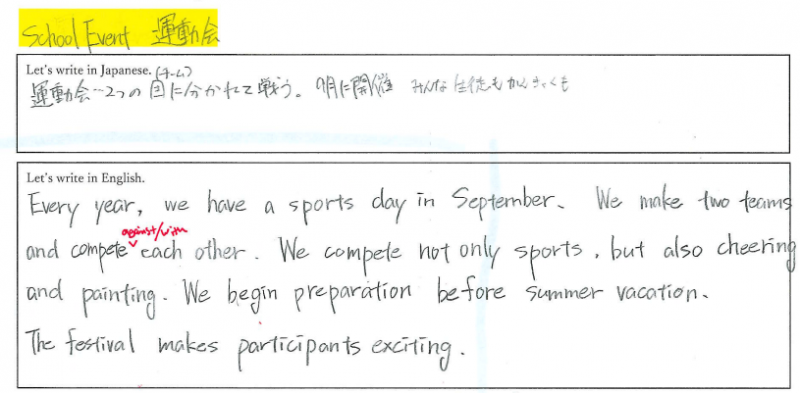 School Event 運動会
Let's write in Japanese. (チーム)
運動会…2つの国に分かれて戦う。9月に開催 みんな 生徒も かんきゃくも
Let's write in English.
Every year, we have a sports day in September. We make two teams
against/with
and compete each other. We compete not only sports, but also cheering
and painting. We begin preparation before summer vacation.
The festival makes participants exciting.